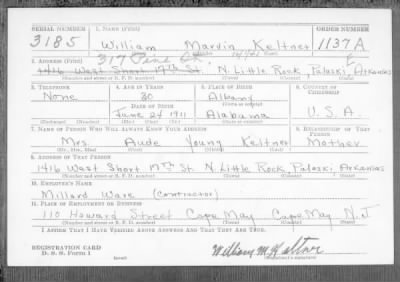 SERIAL NUMBER 1. NAME (Print) ORDER NUMBER
3185 William Marvin Keltner 1137A
317 Pine
2. ADDRESS (Print)
1416 West Short 17th St. N. Little Rock, Pulaski, Arkansas
(Number and street or R. F. D. number) (Town) (County) (State)
3. TELEPHONE 4. AGE IN YEARS 5. PLACE OF BIRTH 6. COUNTRY OF CITIZENSHIP
None 30 Albany
DATE OF BIRTH (Town or county)
June 24 1911 Alabama U.S.A.
(Exchange) (Number) (Mo.) (Day) (Yr.) (State or country)
7. NAME OF PERSON WHO WILL ALWAYS KNOW YOUR ADDRESS 8. RELATIONSHIP OF THAT PERSON
Mrs. Aude Young Keltner Mother
(Mr., Mrs., Miss) (First) (Middle) (Last)
9. ADDRESS OF THAT PERSON
1416 West Short 17th St. N. Little Rock, Pulaski, Arkansas
(Number and street or R. F. D. number) (Town) (County) (State)
10. EMPLOYER'S NAME
Millard Ware (Contractor)
11. PLACE OF EMPLOYMENT OR BUSINESS
110 Howard Street Cape May Cape May N.J
(Number and street or R. F. D. number) (Town) (County) (State)
I AFFIRM THAT I HAVE VERIFIED ABOVE ANSWERS AND THAT THEY ARE TRUE.
REGISTRATION CARD
D. S. S. Form 1 William M Keltner
(Registrant's signature)